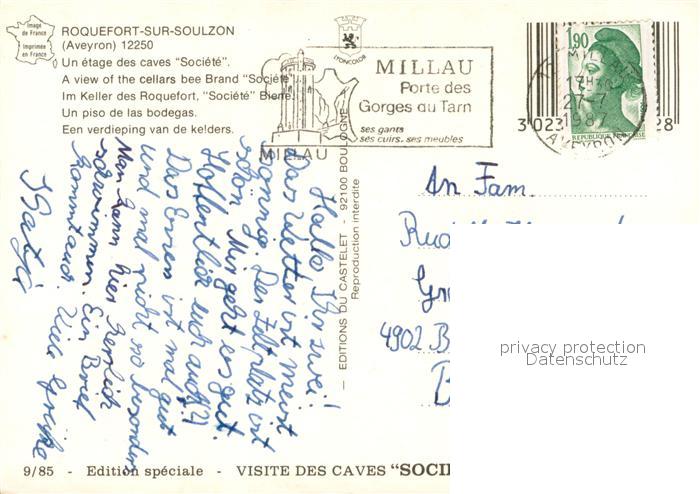 Image
de France
Imprimée
en France
ROQUEFORT-SUR-SOULZON
(Aveyron) 12250
Un étage des caves "Société".
A view of the cellars bee Brand "Société"
Im Keller des Roquefort, "Société" Biene.
Un piso de las bodegas.
Een verdieping van de kelders.
LYONCOLOR
MILLAU
MILLAU
Porte des
Gorges du Tarn
ses gants
ses cuirs, ses meubles
1,90
REPUBLIQUE FRANÇAISE
MILLAU
17H
27-7
1987
AVEYRON
3 023
8
Hallo Ihr zwei!
Das Wetter ist meist
sonnig. Der Zeltplatz ist
schön. Mir geht es gut.
Hoffentlich euch auch(?)
Das Essen ist mal gut
und mal nicht so besonders
Man kann hier herrlich
schwimmen. Ein Brief
kommt auch. Viele Grüße
Katja
— EDITIONS DU CASTELET - 92100 BOULOGNE
Reproduction interdite
An Fam.
Rud
Gr
4902 B
privacy protection
Datenschutz
9/85 - Edition spéciale - VISITE DES CAVES "SOCI